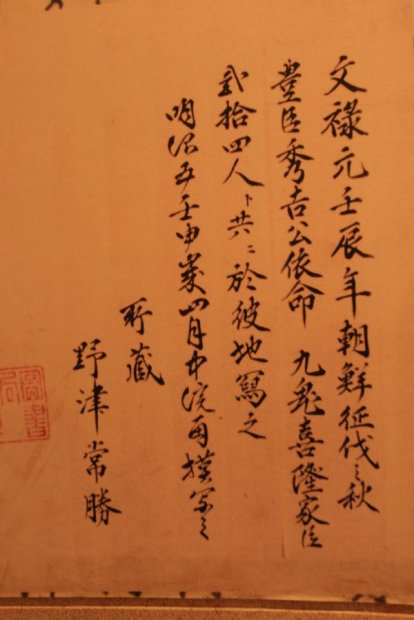 文禄元壬辰年朝鮮征伐之秋
豊臣秀吉公依命 九鬼喜隆家臣
弐拾四人ト共ニ於彼地寫之
明治五壬申歳四月中浣再模写之
所蔵
野津常勝